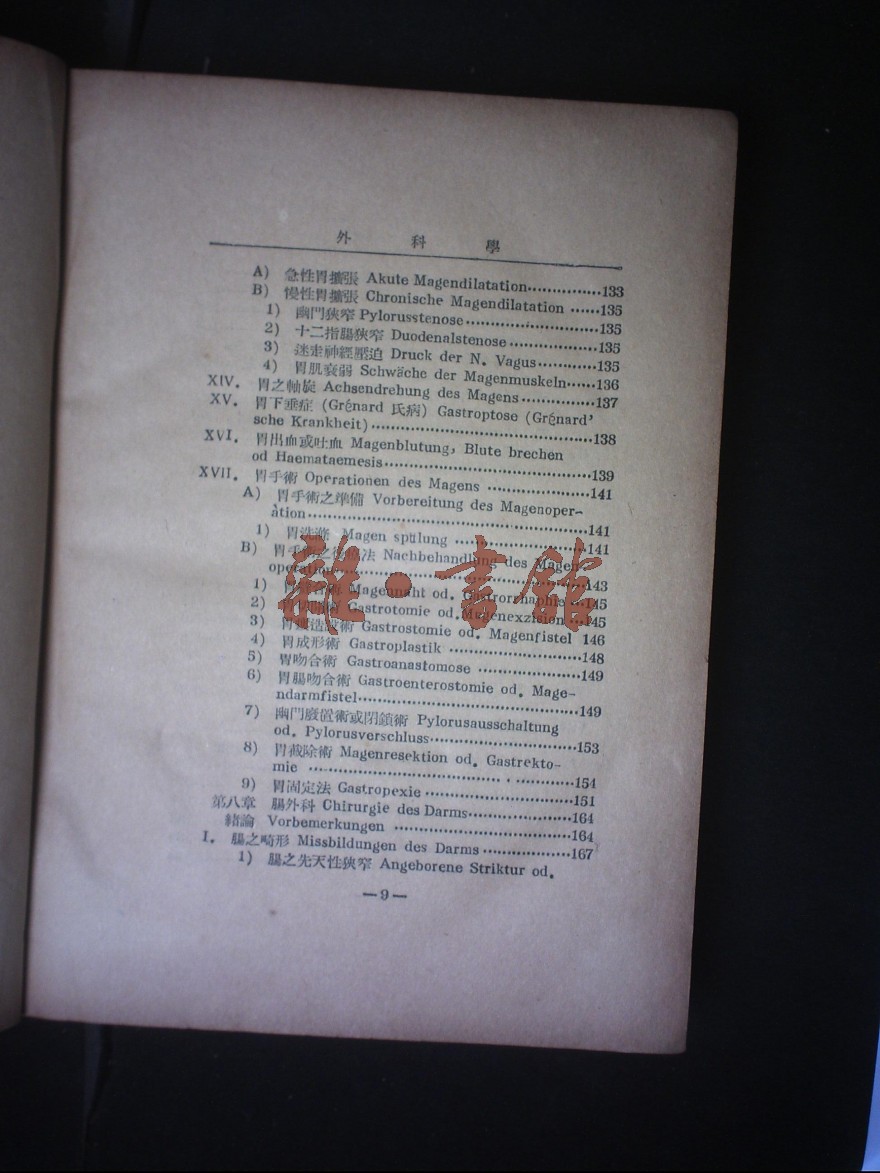 外科學
A) 急性胃擴張 Akute Magendilatation……………133
B) 慢性胃擴張 Chronische Magendilatation ……135
1) 幽門狹窄 Pylorusstenose……………………135
2) 十二指腸狹窄 Duodenalstenose……………………135
3) 迷走神經壓迫 Druck der N. Vagus……………135
4) 胃肌衰弱 Schwäche der Magenmuskeln……136
XIV. 胃之軸旋 Achsendrehung des Magens……………137
XV. 胃下垂症 (Grénard 氏病) Gastroptose (Grénard'
sche Krankheit)……………………………………138
XVI. 胃出血或吐血 Magenblutung, Blute brechen
od Haemataemesis……………………………………139
XVII. 胃手術 Operationen des Magens …………………141
A) 胃手術之準備 Vorbereitung des Magenoper-
ation……………………………………………………141
1) 胃洗滌 Magen spülung ………………………141
B) 胃手術之後 法 Nachbehandlung des Magen
operation……………………………………………143
1) Magennaht od. Gastrorrhaphie…145
2) Gastrotomie od. Magenexzision…145
3) 胃 造設術 Gastrostomie od. Magenfistel 146
4) 胃成形術 Gastroplastik ………………………148
5) 胃吻合術 Gastroanastomose …………………149
6) 胃腸吻合術 Gastroenterostomie od. Mage-
ndarmfistel…………………………………………149
7) 幽門廢置術或閉鎖術 Pylorusausschaltung
od. Pylorusverschluss……………………………153
8) 胃截除術 Magenresektion od. Gastrekto-
mie ……………………………………………………154
9) 胃固定法 Gastropexie……………………………151
第八章 腸外科 Chirurgie des Darms…………………164
緒論 Vorbemerkungen …………………………………164
I. 腸之畸形 Missbildungen des Darms ………………167
1) 腸之先天性狹窄 Angeborene Striktur od.
—9—
雜·書館